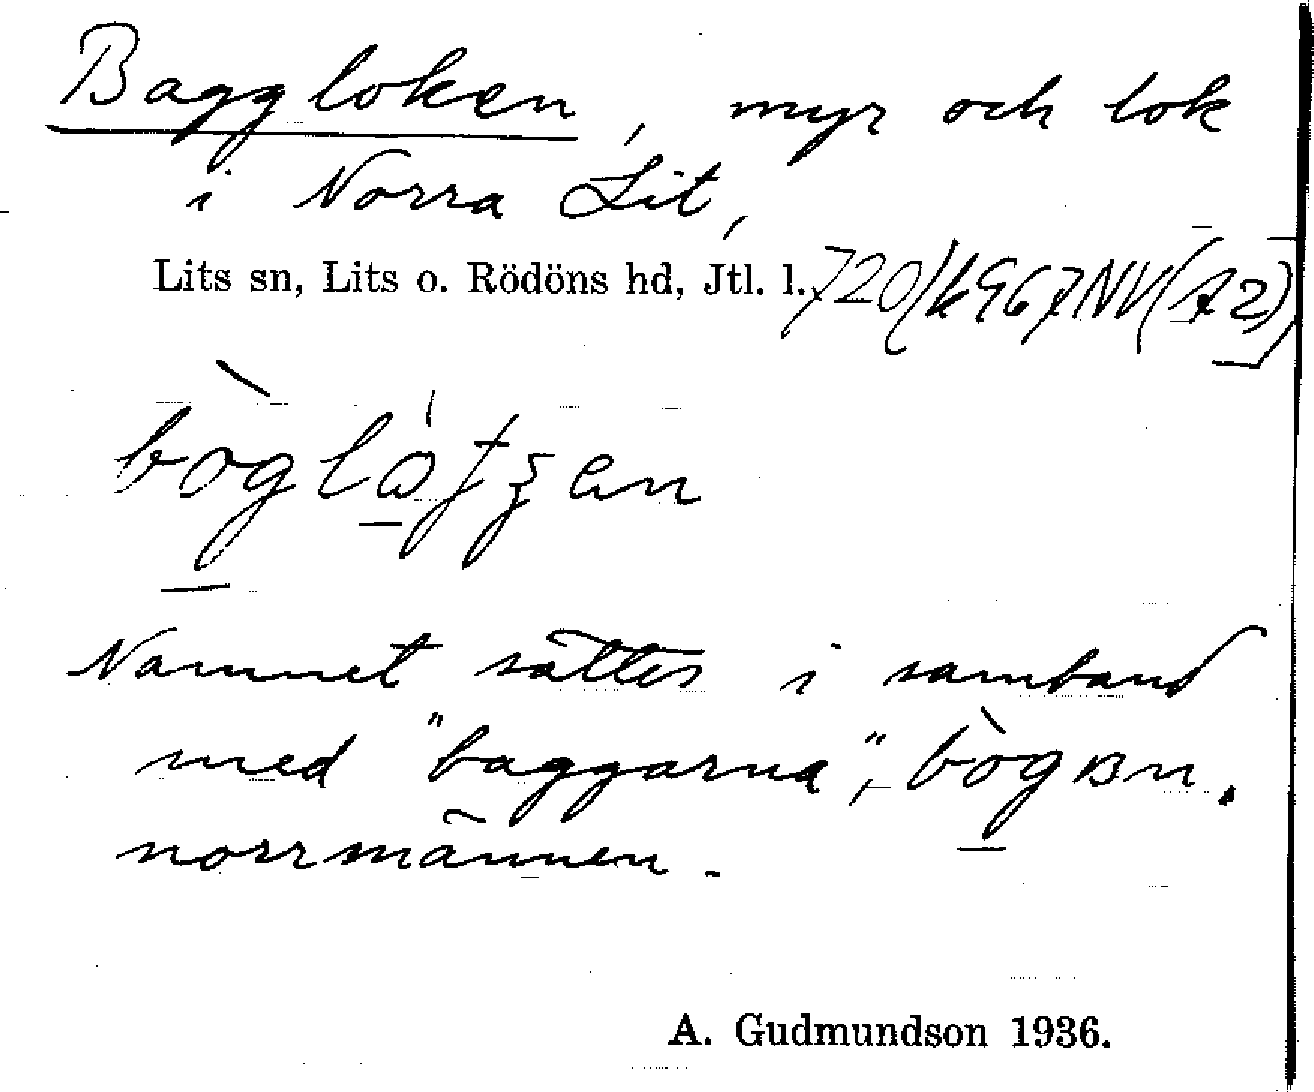 Baggloken, myr och lok
i Norra Lit,
Lits sn, Lits o. Rödöns hd, Jtl. l.
Namnet sättes i samband
med "baggarna",
norrmännen.
A. Gudmundson 1936.